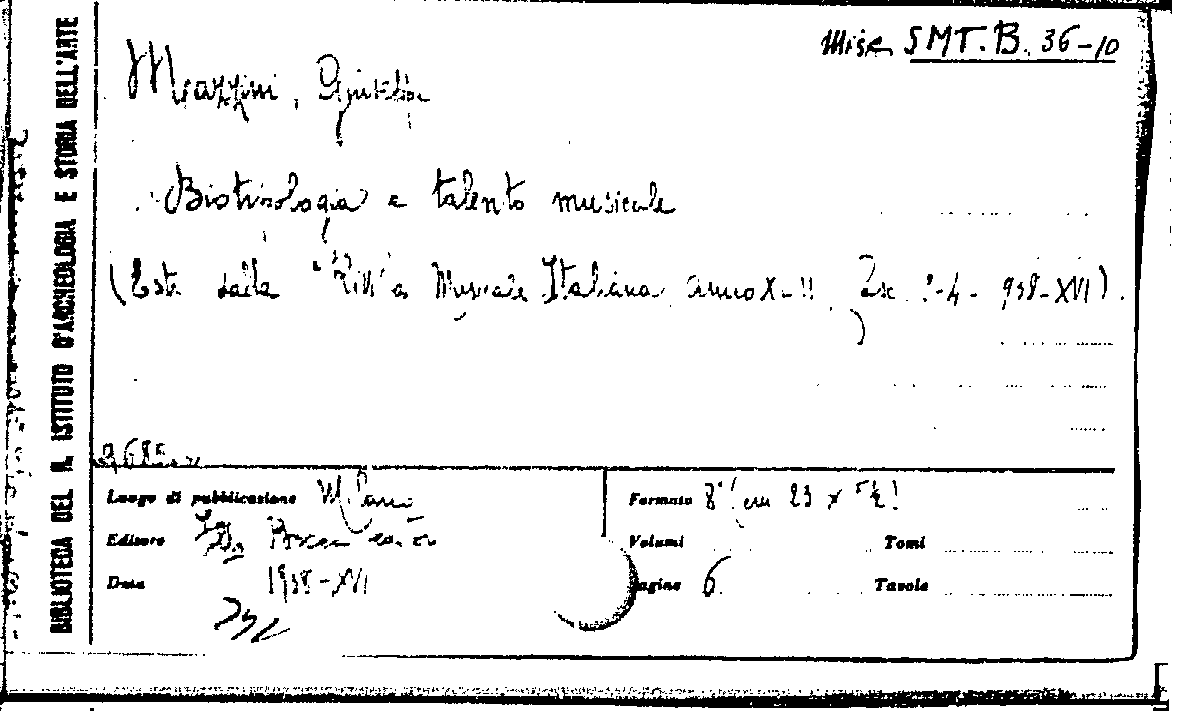 BIBLIOTECA DEL R. ISTITUTO D'ARCHEOLOGIA E STORIA DELL'ARTE
Misc SMT. B. 36-10
Mazzini, Giuseppe
Biotipologia e talento musicale
(Estr. dalla "Rivista Musicale Italiana anno X 4 - 938-XVI).
Luogo di pubblicazione Milano
Editore Bocca
Data 1938-XVI
Formato 8° (cm 23 x
Volumi Tomi
Pagine 6. Tavole